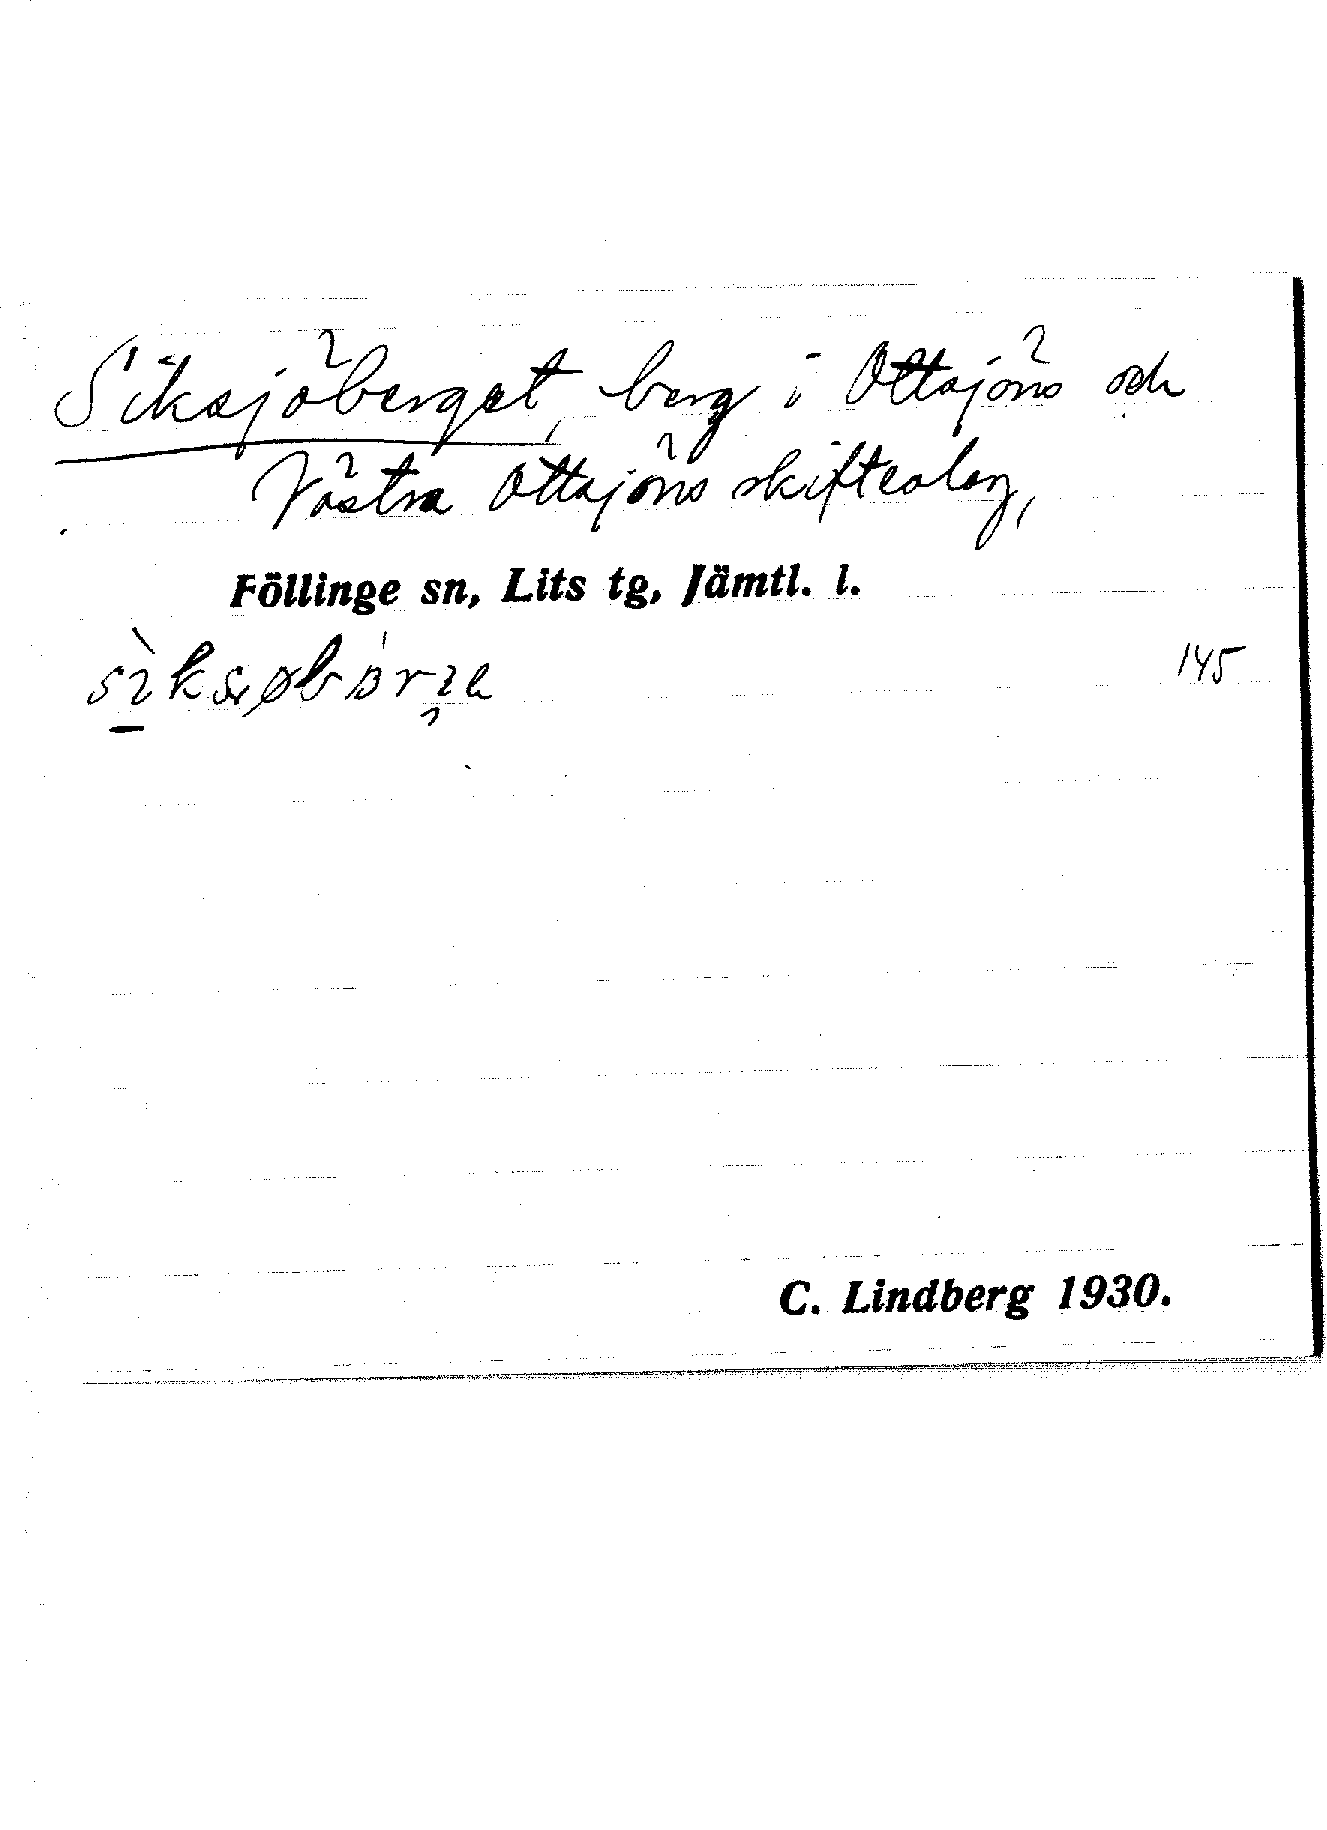 Siksjöberget, berg i Ottsjöns och
Västra Ottsjöns skifteslag,
Föllinge sn, Lits tg, Jämtl. l.
145
C. Lindberg 1930.